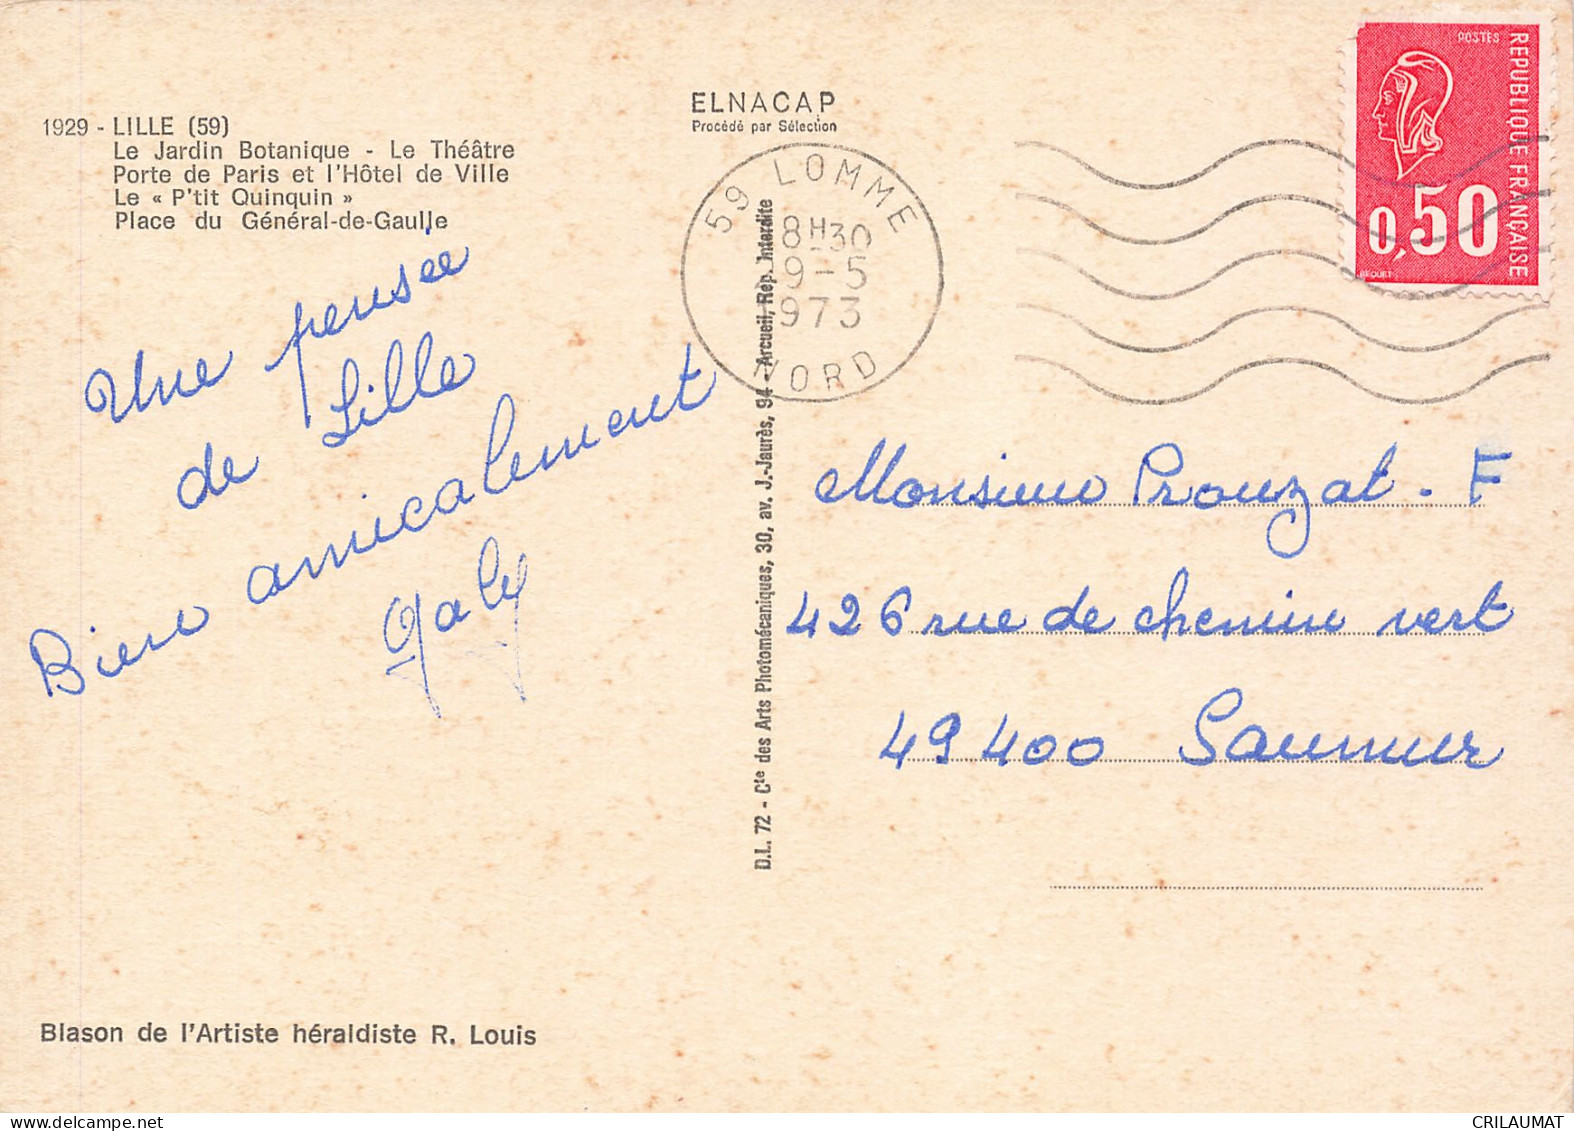 1929 - LILLE (59)
Le Jardin Botanique - Le Théâtre
Porte de Paris et l'Hôtel de Ville
Le « P'tit Quinquin »
Place du Général-de-Gaulle
ELNACAP
Procédé par Sélection
59 LOMME
8H30
9-5
973
NORD
POSTES
REPUBLIQUE FRANÇAISE
0,50
BEQUET
Une pensée
de Lille
Bien amicalement
Galy
D.L. 72 - Cie des Arts Photomécaniques, 30, av. J.-Jaurès, 94 - Arcueil, Rép. Interdite
Monsieur Prouzat - F
426 rue de chemin vert
49400 Saumur
Blason de l'Artiste héraldiste R. Louis
CRILAUMAT